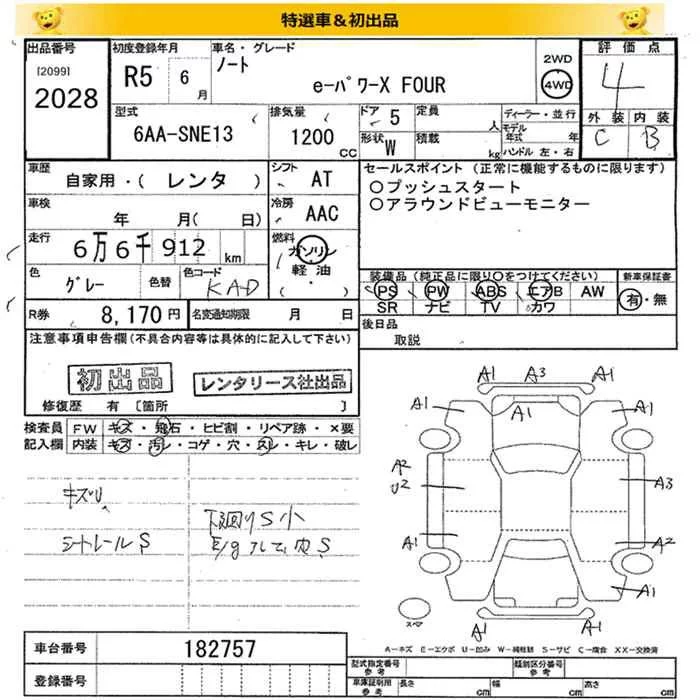 特選車&初出品
出品番号
[2099]
2028
初度登録年月
R5 6月
車名・グレード
ノート
e-パワーX FOUR
2WD
4WD
評価点
4
外装 内装
C B
型式
6AA-SNE13
排気量
1200 CC
ドア 5
形状 W
定員 人
積載 kg
ディーラー・並行
モデル年式 年
ハンドル 左・右
車歴
自家用・( レンタ )
シフト
AT
車検
年 月( 日)
冷房
AAC
走行
6万6千912 km
燃料
ガソリン
軽油
( ・ )
色
グレー
色替
色コード
KAD
R券 8,170円
名変通知期限 月 日
セールスポイント (正常に機能するものに限ります)
○プッシュスタート
○アラウンドビューモニター
装備品(純正品に限り○をつけてください)
PS PW ABS エアB AW
SR ナビ TV カワ
新車保証書
有・無
後日品
取説
注意事項申告欄(不具合内容等は具体的に記入して下さい)
初出品
レンタリース社出品
修復歴 有 [箇所 ]
検査員記入欄
FW キズ・飛石・ヒビ割・リペア跡・×要
内装 キズ・汚レ・コゲ・穴・スレ・キレ・破レ
キズU
シートレールS
下廻りS小
E/g
A1 A3 A1
A1 A1 A1
A2
U2
A3
A1 A2
A1
A1 A1
スペア
A-キズ E-エクボ U-凹み W-補修跡 S-サビ C-腐食 XX-交換済
車台番号 182757
登録番号
型式指定番号 参考
類別区分番号 参考
車庫証明用 参考
長さ cm 幅 cm 高さ cm